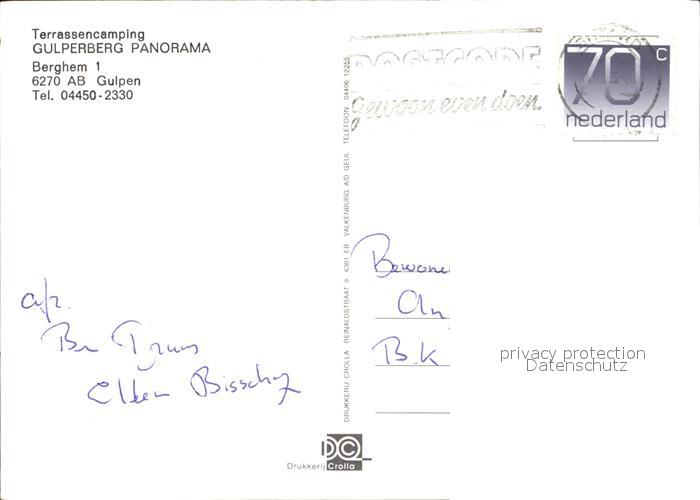 Terrassencamping
GULPERBERG PANORAMA
Berghem 1
6270 AB Gulpen
Tel. 04450-2330
POSTCODE
gewoon even doen.
70 c
nederland
DRUKKERIJ CROLLA REINALDSTRAAT 9 6301 EB VALKENBURG A/D GEUL TELEFOON 04406 12255
Bewone
An
B.K
privacy protection
Datenschutz
afz.
Ellen Bisschop
DC
Drukkerij Crolla